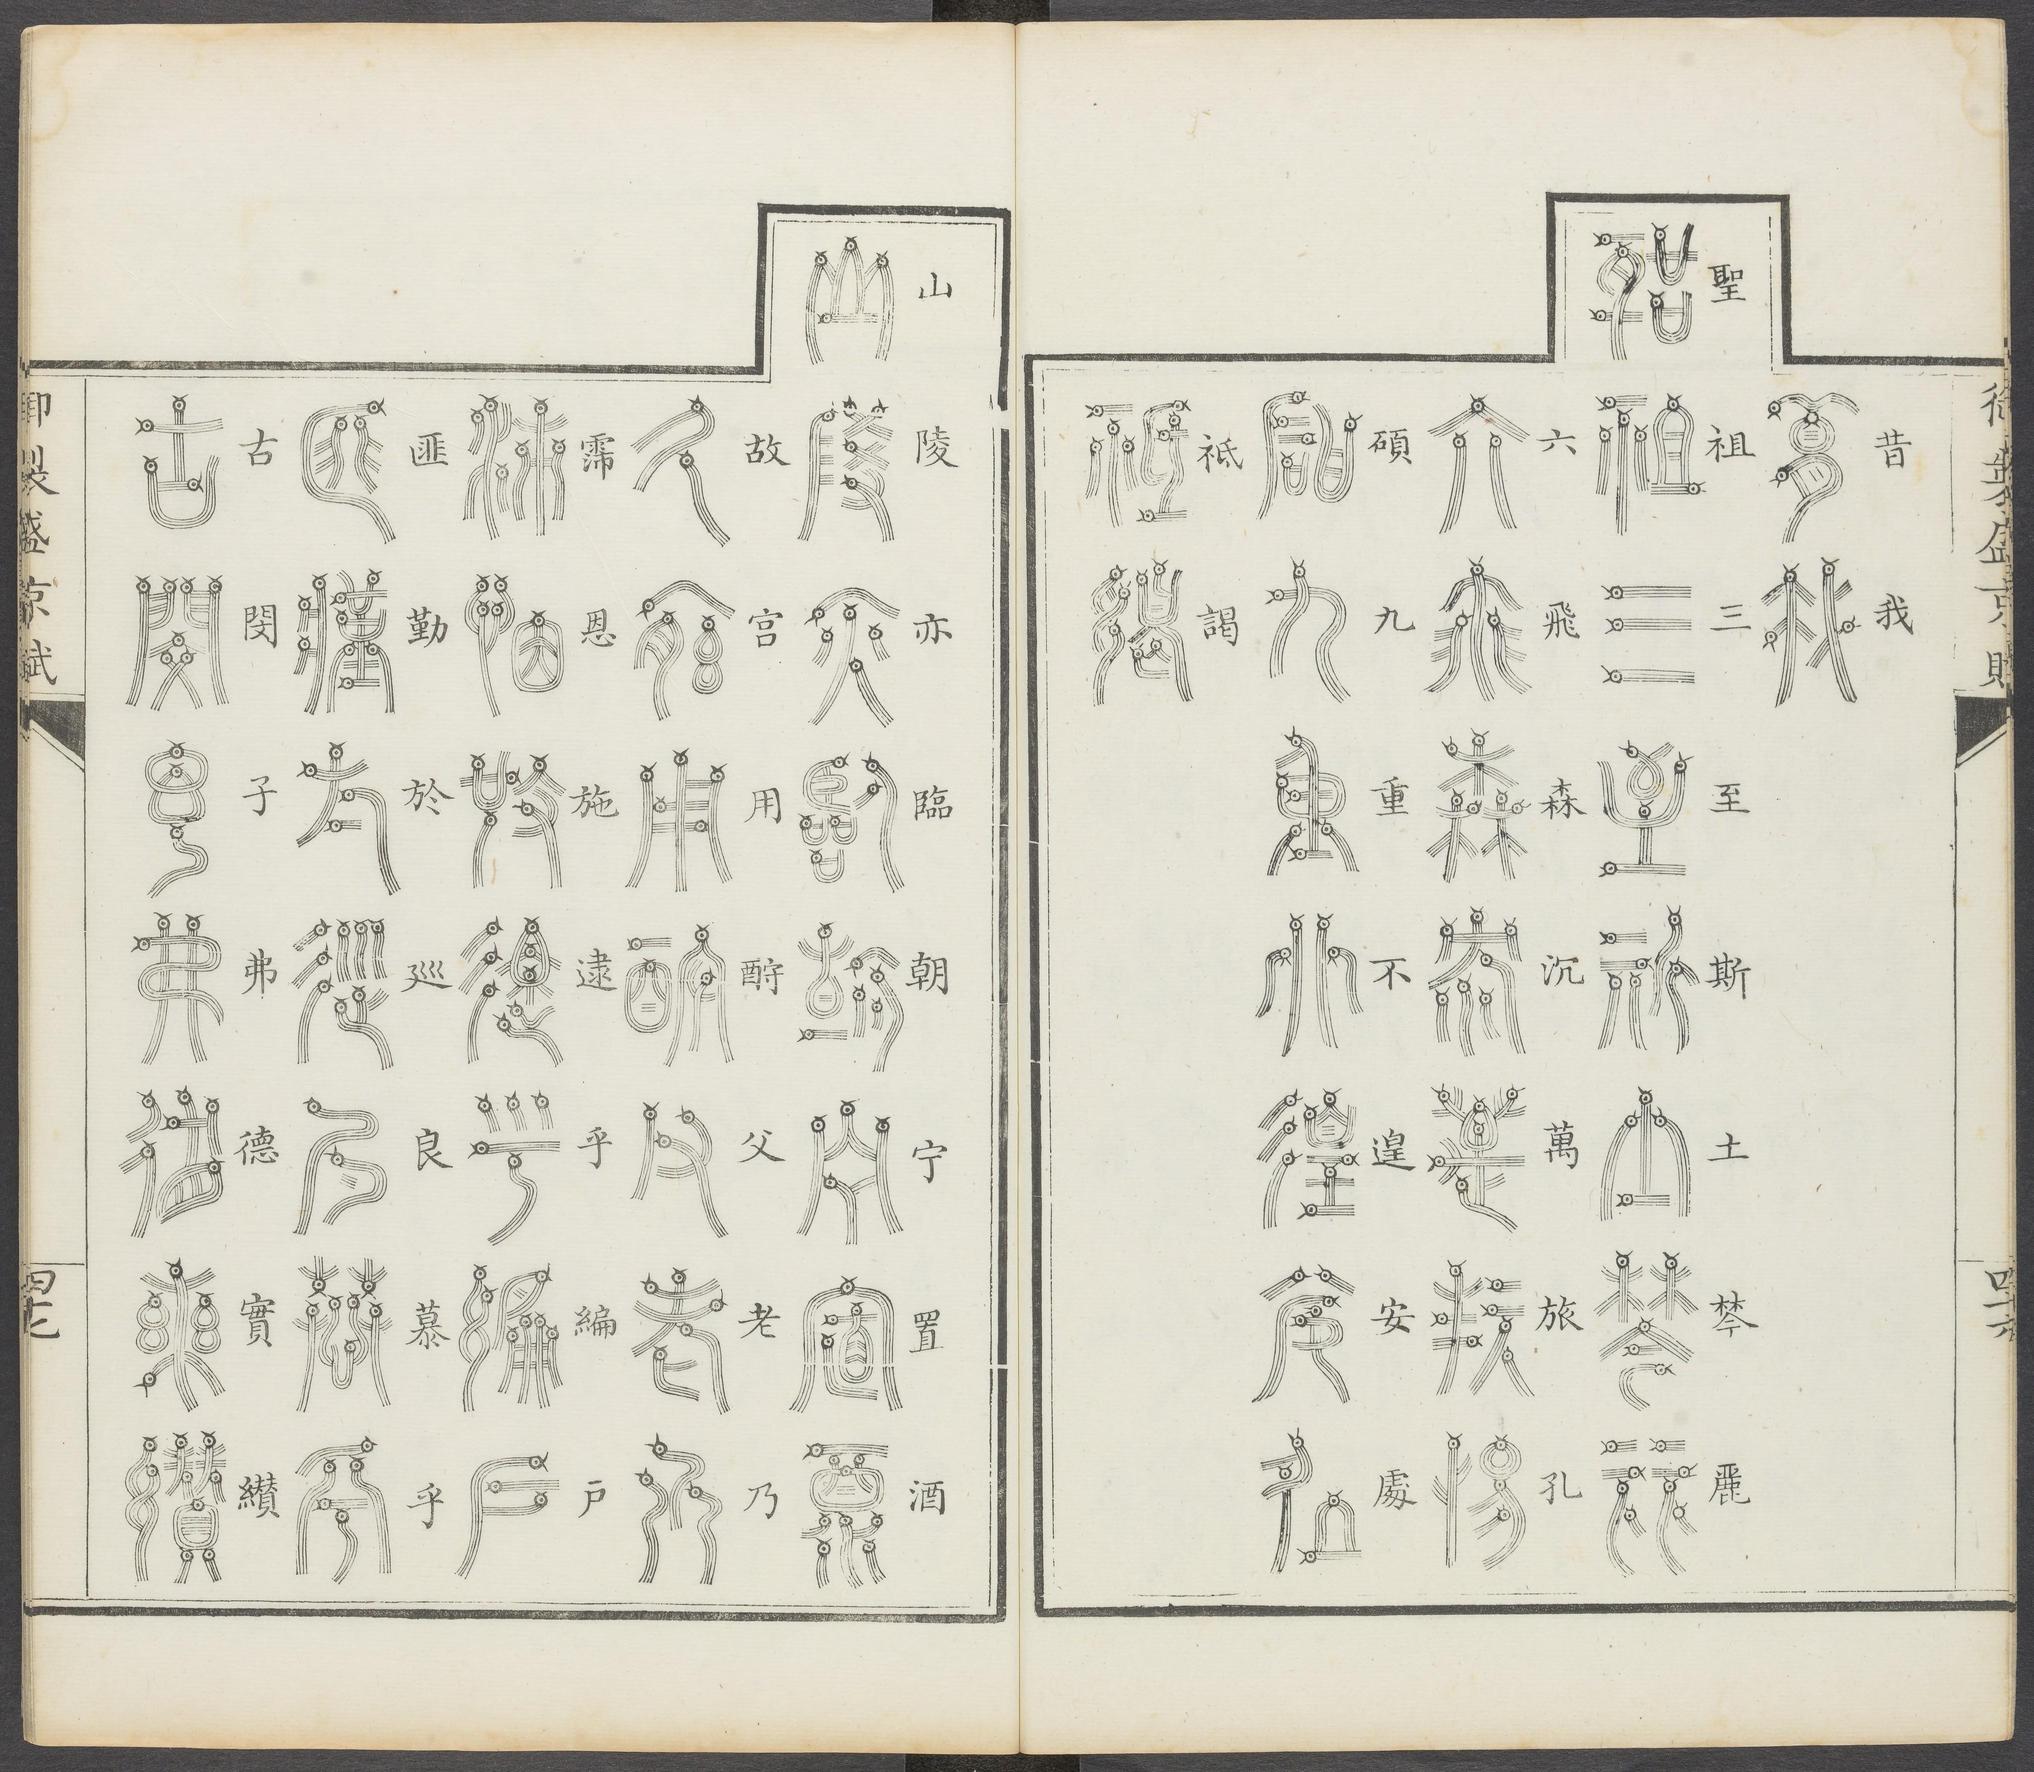 昔我
聖祖三至斯土棽麗
六飛森沉萬旅孔
碩九重不遑安處
祗謁
山陵亦臨朝宁置酒
故宮用酧父老乃
霈恩施逮乎編戸
匪勤於廵良慕乎
古閔子弗德實纉
御製盛京賦
四十七